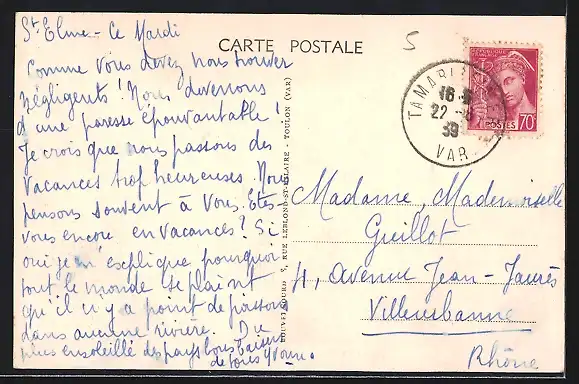 St Elme - Ce Mardi
Comme vous devez nous trouver
négligents ! Nous devenons
d'une paresse épouvantable !
Je crois que nous passons des
vacances trop heureuses. Nous
pensons souvent à vous. Etes-
vous encore en vacances ? Si
oui je m'explique pourquoi
tout le monde se plaint
qu'il n'y a point de poissons
dans aucune rivière. Du
plus ensoleillé des pays bons baisers
de tous Yvonne.
CARTE POSTALE
5
RÉPUBLIQUE
FRANÇAISE
POSTES 70c
TAMARIS
16
22
39
VAR
RUE LEBLOND-ST-HILAIRE - TOULON (VAR)
Madame, Mademoiselle
Guillot
4, avenue Jean-Jaurès
Villeurbanne
Rhône